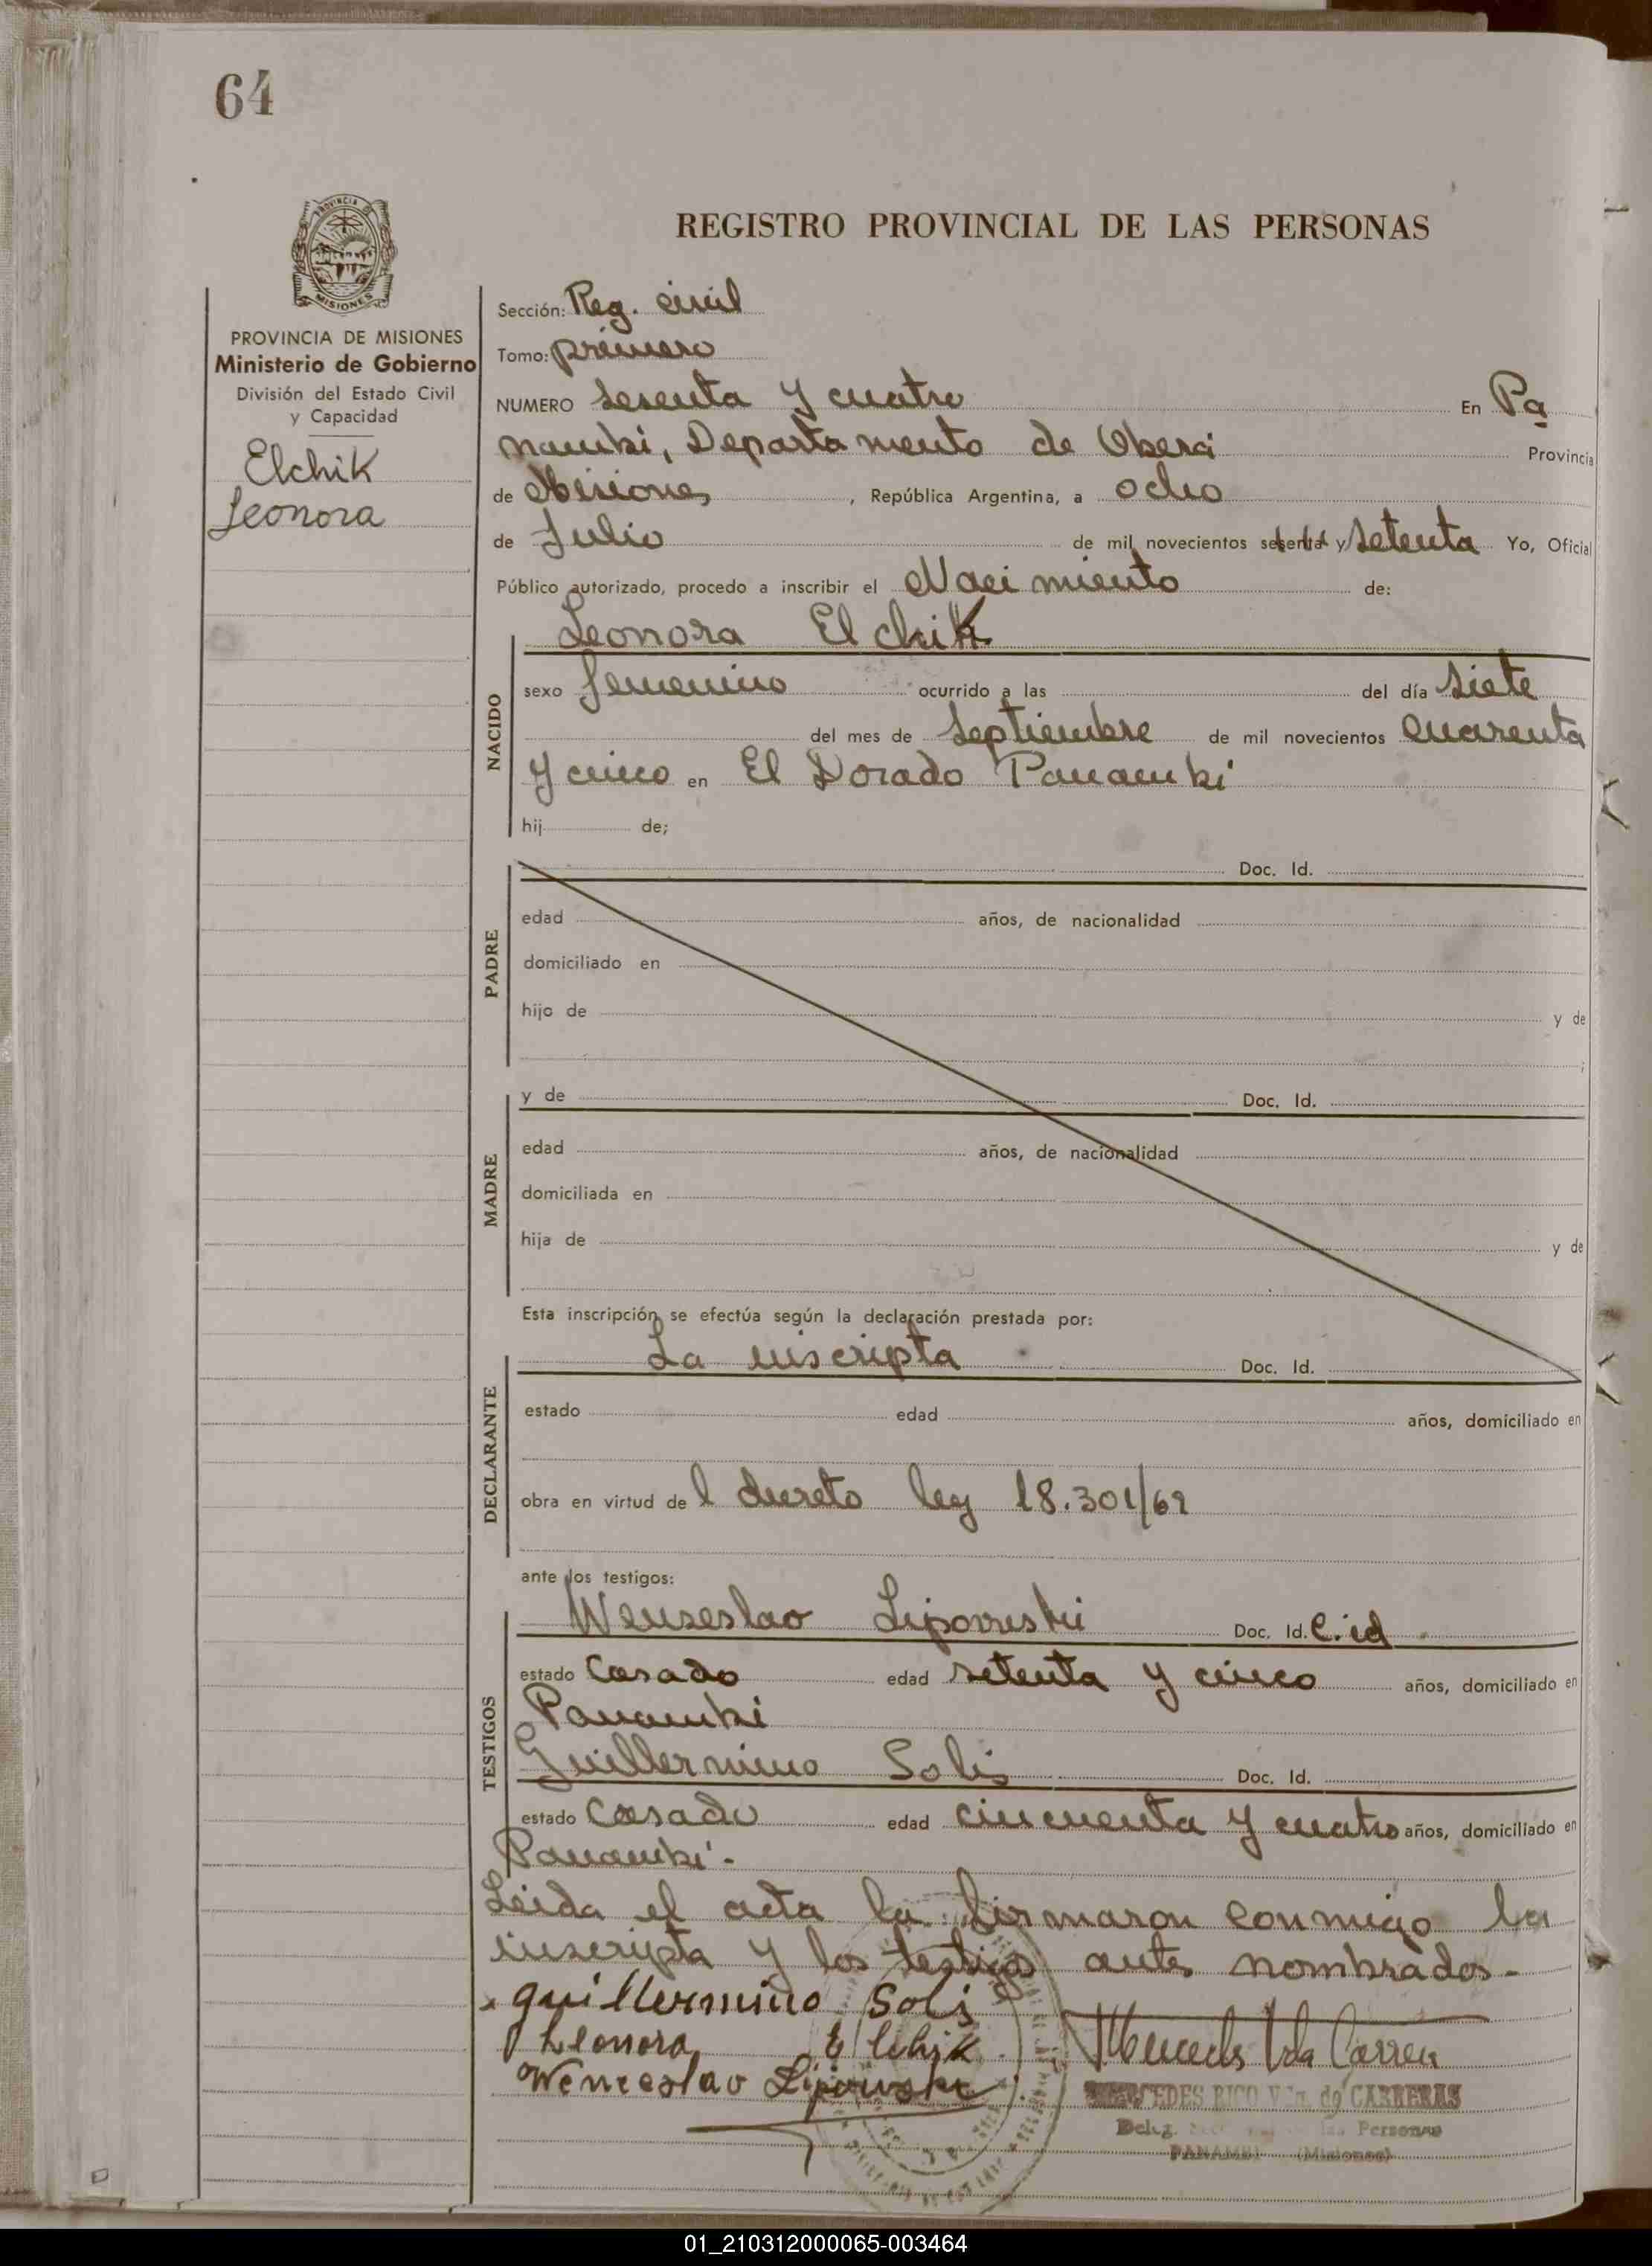 64
REGISTRO PROVINCIAL DE LAS PERSONAS
PROVINCIA DE MISIONES
Ministerio de Gobierno
División del Estado Civil
y Capacidad
Elchik
Leonora
Sección: Reg. civil
Tomo: primero
NUMERO sesenta y cuatro En Pa
nambi, Departamento de Oberá Provincia
de Misiones, República Argentina, a ocho
de Julio de mil novecientos sesenta y setenta Yo, Oficial
Público autorizado, procedo a inscribir el Nacimiento de:
Leonora Elchik
NACIDO
sexo femenino ocurrido a las del día siete
del mes de septiembre de mil novecientos cuarenta
y cinco en El Dorado Panambi
hij de;
PADRE
Doc. Id.
edad años, de nacionalidad
domiciliado en
hijo de y de
;
MADRE
y de Doc. Id.
edad años, de nacionalidad
domiciliada en
hija de y de
Esta inscripción se efectúa según la declaración prestada por:
DECLARANTE
La inscripta Doc. Id.
estado edad años, domiciliado en
obra en virtud de l decreto ley 18.301/69
ante los testigos:
TESTIGOS
Wenseslao Lipowski Doc. Id. C.id
estado casado edad setenta y cinco años, domiciliado en
Panambi
Guillermino Solis Doc. Id.
estado casado edad cincuenta y cuatro años, domiciliado en
Panambi.-
Leida el acta la firmaron conmigo la
inscripta y los testigos antes nombrados.-
guillermino Solis
Leonora Elchik
Wenceslao Lipowski
MERCEDES RICO Vda. de CARRERAS
Personas
PANAMBI (Misiones)
01_210312000065-003464